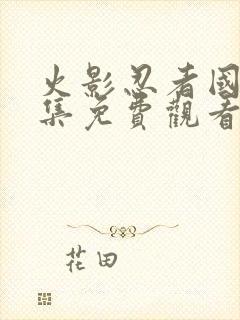 火影忍者國
集免費觀看
花田